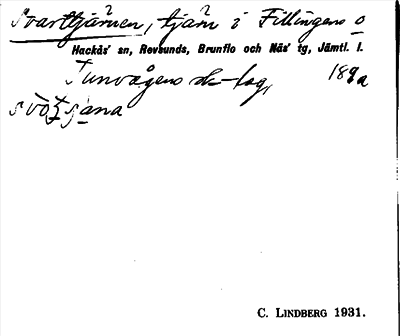 Svarttjärnen, tjärn i Fillingens o
Hackås' sn, Revsunds, Brunflo och Näs' tg, Jämtl. l.
Tunvågens sk-lag, 189a
C. LINDBERG 1931.